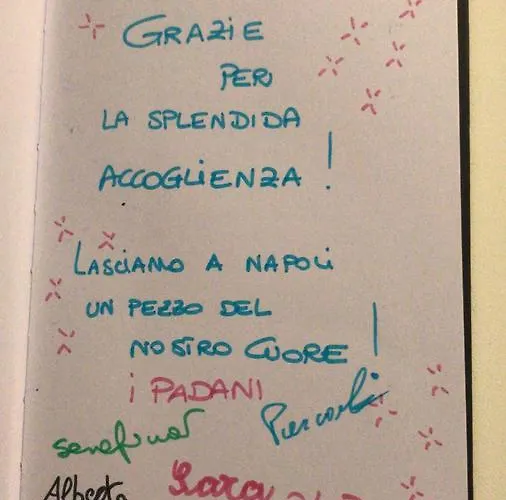 GRAZIE
PER
LA SPLENDIDA
ACCOGLIENZA!
LASCIAMO A NAPOLI
UN PEZZO DEL
NOSTRO CUORE!
i PADANI
Alberto
Sara